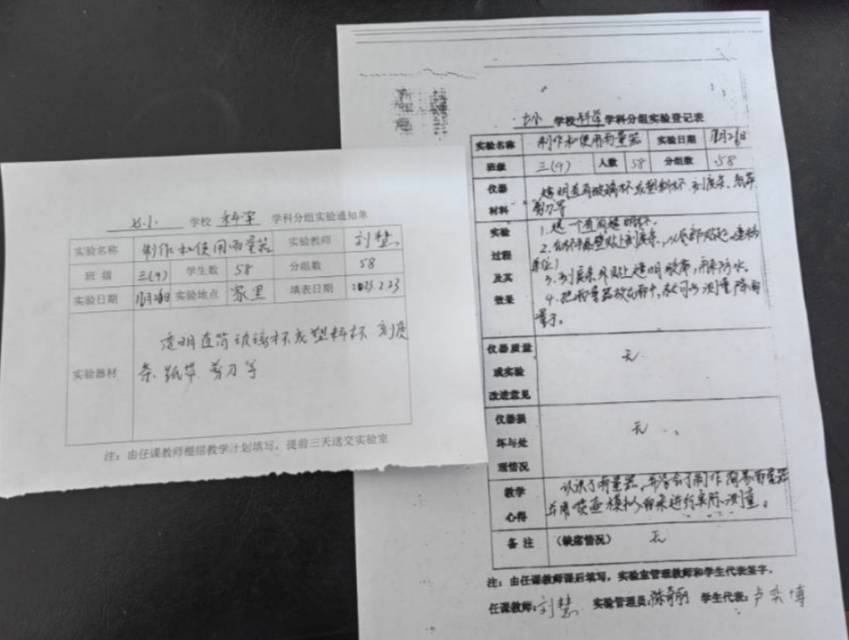 学校 科学 学科分组实验通知单
实验名称 制作和使用雨量器 实验教师 刘慧
班 级 三(9) 学生数 58 分组数 58
实验日期 实验地点 家里 填表日期
实验器材 透明直筒玻璃杯或塑料杯 刻度
条、纸带、剪刀等
注:由任课教师根据教学计划填写,提前三天送交实验室
学校 科学 学科分组实验登记表
实验名称 制作和使用雨量器 实验日期
班级 三(9) 人数 58 分组数 58
仪器 透明直筒玻璃杯或塑料杯 刻度条、
材料 剪刀等
实验 1.选一个直筒透明杯。
过程
及其 3.刻度条外贴上透明胶带,用来防水。
效果 4.把雨量器放在雨中,就可以测量降雨
量了。
仪器质量
或实验 无
改进意见
仪器损
坏与处 无
理情况
教学 认识了雨量器,并学会了制作简易雨量器
心得 模拟雨来进行实际测量。
备 注 (缺席情况) 无
注:由任课教师课后填写,实验室管理教师和学生代表签字。
任课教师:刘慧 实验管理员: 学生代表: